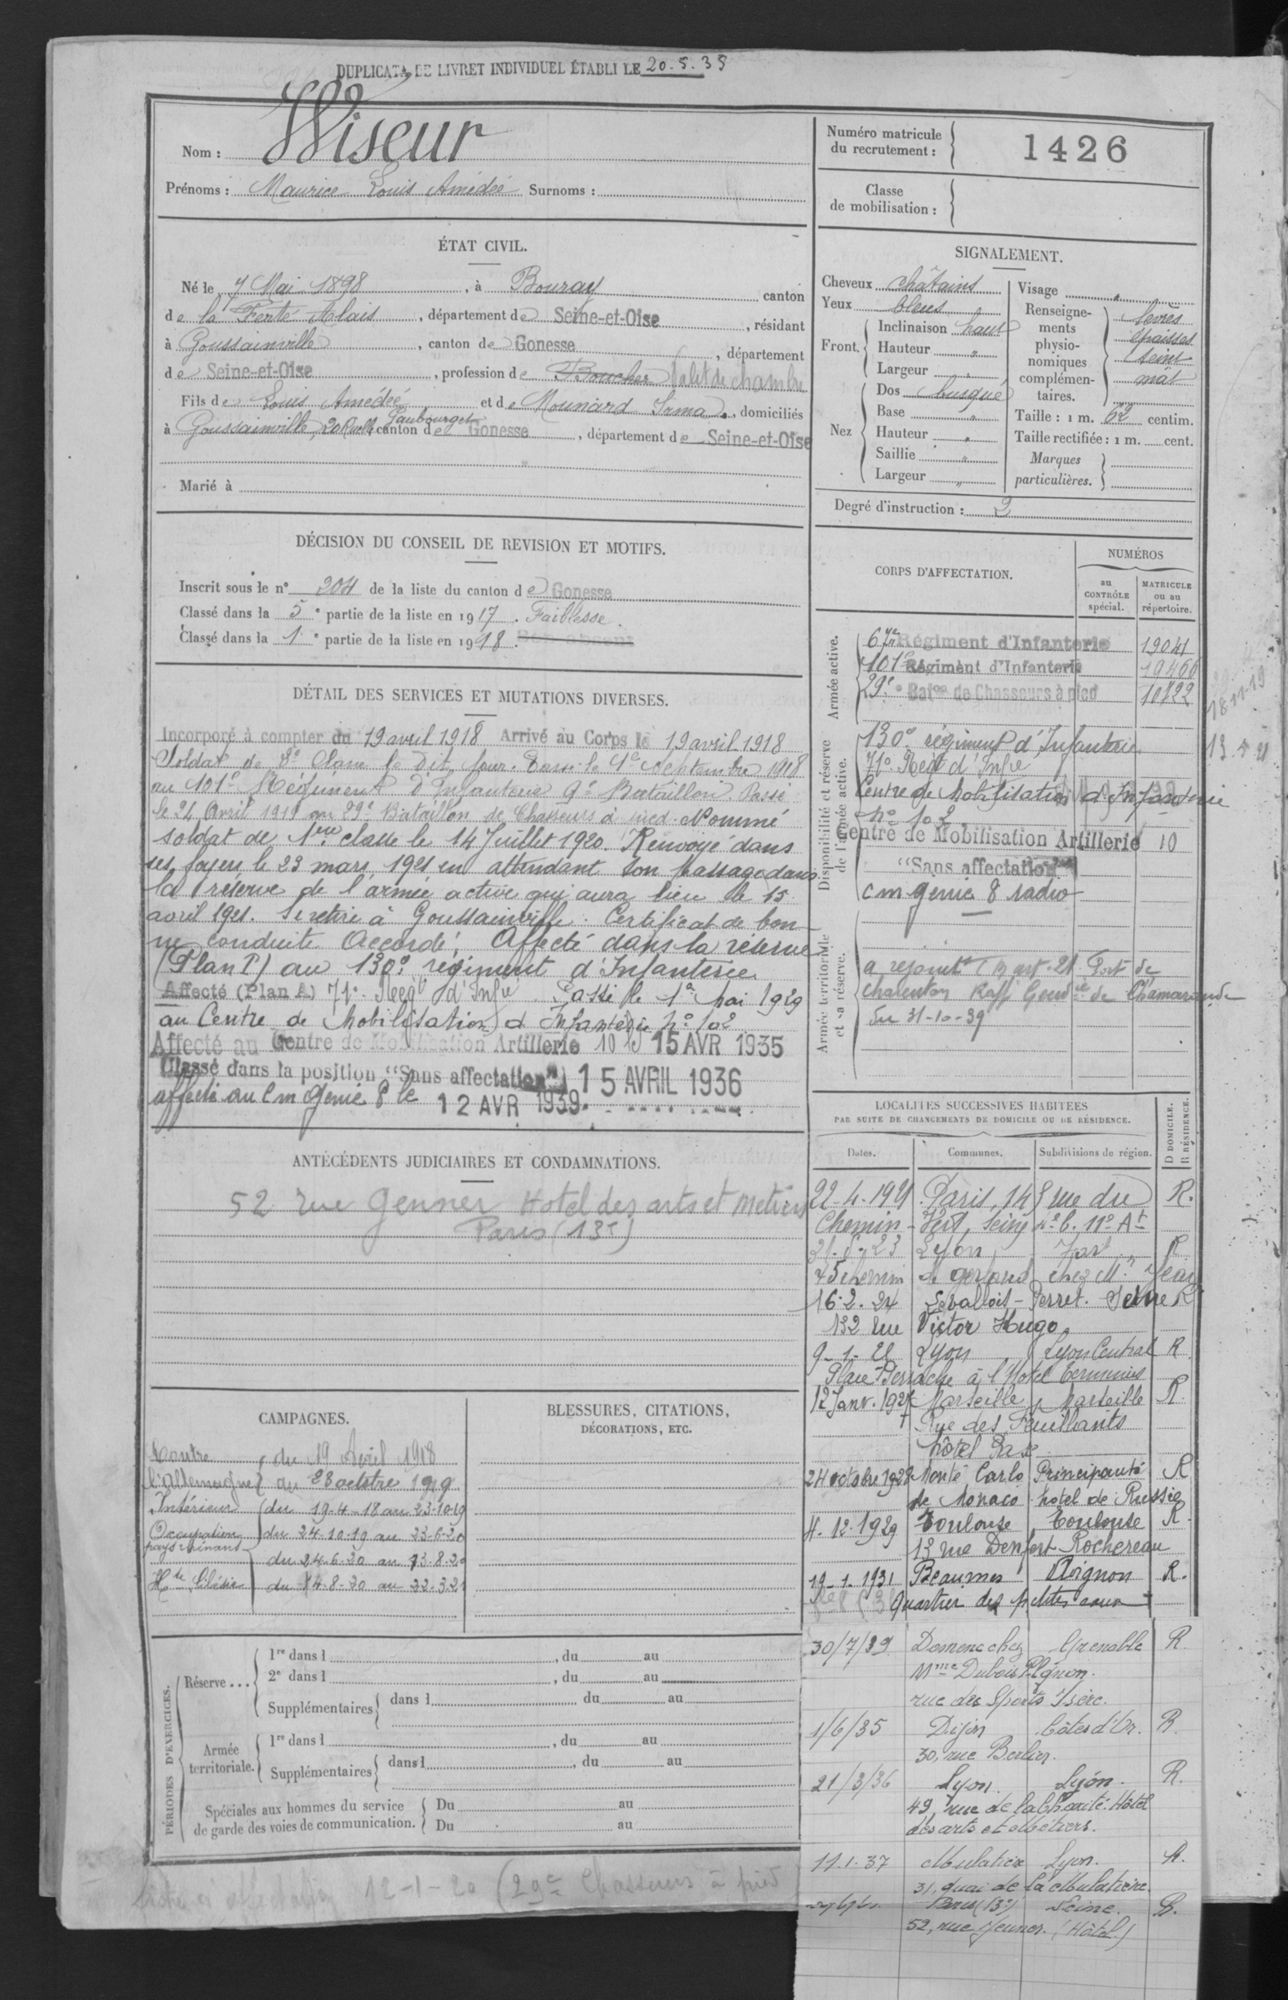 DUPLICATA DE LIVRET INDIVIDUEL ÉTABLI LE 20.5.35
Nom : Wiseur
Prénoms : Maurice Louis Amédée Surnoms :
Numéro matricule du recrutement : 1426
Classe de mobilisation :
ÉTAT CIVIL.
Né le 7 Mai 1898, à Bouray canton
de la Ferté Alais, département de Seine-et-Oise, résidant
à Goussainville, canton de Gonesse, département
de Seine-et-Oise, profession de Boucher Valet de chambre
Fils de Louis Amédée et de Mounard Irma, domiciliés
à Goussainville, 20 Ruelle Faubourget canton de Gonesse, département de Seine-et-Oise
Marié à
SIGNALEMENT.
Cheveux châtains
Yeux bleus
Front. Inclinaison haut
Hauteur "
Largeur "
Nez Dos busqué
Base "
Hauteur "
Saillie "
Largeur "
Visage "
Renseignements physionomiques complémentaires. lèvres épaisses teint mât
Taille : 1 m. 62 centim.
Taille rectifiée : 1 m. cent.
Marques particulières.
Degré d'instruction : 2
DÉCISION DU CONSEIL DE REVISION ET MOTIFS.
Inscrit sous le n° 204 de la liste du canton de Gonesse
Classé dans la 5e partie de la liste en 1917. Faiblesse.
Classé dans la 1e partie de la liste en 1918. Bon absent
CORPS D'AFFECTATION.
NUMÉROS
au CONTRÔLE spécial.
MATRICULE ou au répertoire.
Armée active.
67e Régiment d'Infanterie 19041
101e Régiment d'Infanterie 19466
29e Baton de Chasseurs à pied 10822
18-11-19
Disponibilité et réserve de l'armée active.
130e régiment d'Infanterie 13-5-21
71e Regt d'Infie
Centre de Mobilisation d'Infanterie
n° 102
Centre de Mobilisation Artillerie 10
"Sans affectation"
cm genie 8 radio
Armée territoriale et sa réserve.
a rejoint Port de
charenton Gend de Chamarande
du 31-10-39
DÉTAIL DES SERVICES ET MUTATIONS DIVERSES.
Incorporé à compter du 19 avril 1918 Arrivé au Corps le 19 avril 1918
Soldat de 2e Classe le dit jour. Passé le 1er Septembre 1918
au 101e Régiment d'Infanterie 9e Bataillon Passé
le 24 Avril 1919 au 29e Bataillon de Chasseurs à pied. Nommé
soldat de 1ère classe le 14 Juillet 1920. Renvoyé dans
ses foyers le 23 mars 1921 en attendant son Passage dans
la réserve de l'armée active qui aura lieu le 15
avril 1921. Se retire à Goussainville. Certificat de bon-
ne conduite Accordé. Affecté dans la réserve
(Plan P) au 130e régiment d'Infanterie
Affecté (Plan A) 71e Regt d'Infie Passé le 1er Mai 1929
au Centre de Mobilisation d'Infanterie n° 102
Affecté au Centre de Mobilisation Artillerie 10 le 15 AVR 1935
Classé dans la position "Sans affectation" 15 AVRIL 1936
affecté au Cm Génie 8 le 12 AVR 1939
ANTÉCÉDENTS JUDICIAIRES ET CONDAMNATIONS.
52 rue Jenner Hotel des arts et Metiers
Paris (13e)
LOCALITÉS SUCCESSIVES HABITÉES
PAR SUITE DE CHANGEMENTS DE DOMICILE OU DE RÉSIDENCE.
Dates. Communes. Subdivisions de région. D DOMICILE. R RÉSIDENCE.
22-4-1921 Paris, 145 rue du R.
Chemin-Vert, Seine 4e B. 11e At
23 Lyon R
75 chemin de gerland chez Mr
16-2-24 Levallois-Perret. Seine R
132 rue Victor Hugo
9-1-25 Lyon Lyon Central R
Place Perrache à l'Hotel Terminus
12 Janv. 1927 Marseille Marseille R.
Rue des Feuillants
hôtel
24 octobre 1928 Monté Carlo Principauté R
de Monaco hotel de Russie
4.12.1929 Toulouse Toulouse R.
12 rue Denfert Rochereau
19-1-1931 Beaumes Avignon R.
quartier des petites
30/7/39 Domene chez Grenoble R
Mme Dubois
rue des Sports Isère.
1/6/35 Dijon Côtes d'Or. R.
30, rue Berlier.
21/3/36 Lyon. Lyon. R.
49, rue de la Charité. Hôtel
des arts et Métiers.
11.1.37 Mulatière Lyon. R.
31, quai de la Mulatière.
Paris (13e) Seine. R.
52, rue Jenner. (Hôtel)
CAMPAGNES.
Contre l'allemagne du 19 Avril 1918
au 23 octobre 1919.
Intérieur du 19-4-18 au 23-10-19
Occupation pays rhénans du 24-10-19 au 23-6-20
du 24-6-20 au 13-8-20
Hte Silésie du 14-8-20 au 22-3-21
BLESSURES, CITATIONS,
DÉCORATIONS, ETC.
PÉRIODES D'EXERCICES.
Réserve...
1re dans l , du au
2e dans l , du au
Supplémentaires dans l du au
Armée territoriale.
1re dans l , du au
Supplémentaires dans l , du au
Spéciales aux hommes du service de garde des voies de communication.
Du au
Du au
12-1-20 (29e Chasseurs à pied